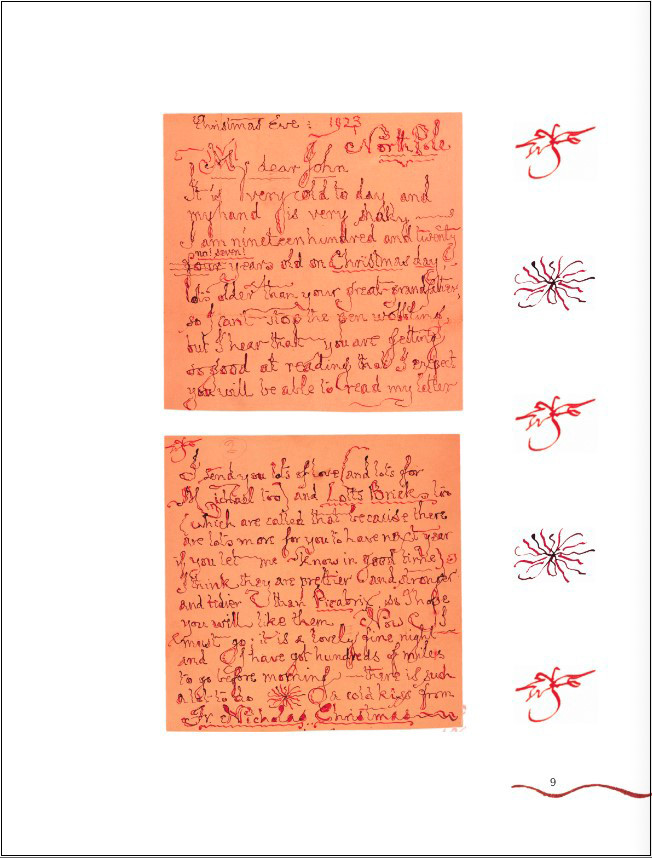 Christmas Eve: 1923
North Pole
My dear John
It is very cold to day and
my hand is very shaky —
I am nineteen hundred and twenty
no! seven!
four years old on Christmas day,
lots older than your great-grandfather,
so I can't stop the pen wobbling,
but I hear that you are getting
so good at reading that I expect
you will be able to read my letter
2
I send you lots of love (and lots for
Michael too) and Lotts Bricks too
(which are called that because there
are lots more for you to have next year
if you let me know in good time)
I think they are prettier and stronger
and tidier than Picabrix so I hope
you will like them Now I
must go; it is a lovely fine night
and I have got hundreds of miles
to go before morning — there is such
a lot to do a cold kiss from
Fr. Nicholas Christmas
9